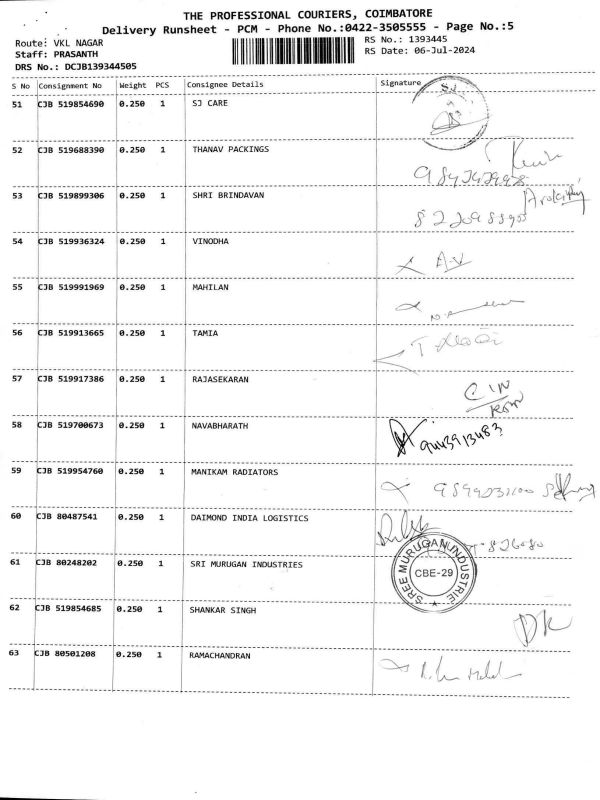 THE PROFESSIONAL COURIERS, COIMBATORE
Delivery Runsheet - PCM - Phone No.:0422-3505555 - Page No.:5
Route: VKL NAGAR RS No.: 1393445
Staff: PRASANTH RS Date: 06-Jul-2024
DRS No.: DCJB139344505
S No Consignment No Weight PCS Consignee Details Signature
51 CJB 519854690 0.250 1 SJ CARE
52 CJB 519688390 0.250 1 THANAV PACKINGS
53 CJB 519899306 0.250 1 SHRI BRINDAVAN
54 CJB 519936324 0.250 1 VINODHA A.V
55 CJB 519991969 0.250 1 MAHILAN
56 CJB 519913665 0.250 1 TAMIA
57 CJB 519917386 0.250 1 RAJASEKARAN
58 CJB 519700673 0.250 1 NAVABHARATH 9443913483
59 CJB 519954760 0.250 1 MANIKAM RADIATORS
60 CJB 80487541 0.250 1 DAIMOND INDIA LOGISTICS
61 CJB 80248202 0.250 1 SRI MURUGAN INDUSTRIES SREE MURUGAN INDUSTRIE CBE-29
62 CJB 519854685 0.250 1 SHANKAR SINGH
63 CJB 80501208 0.250 1 RAMACHANDRAN